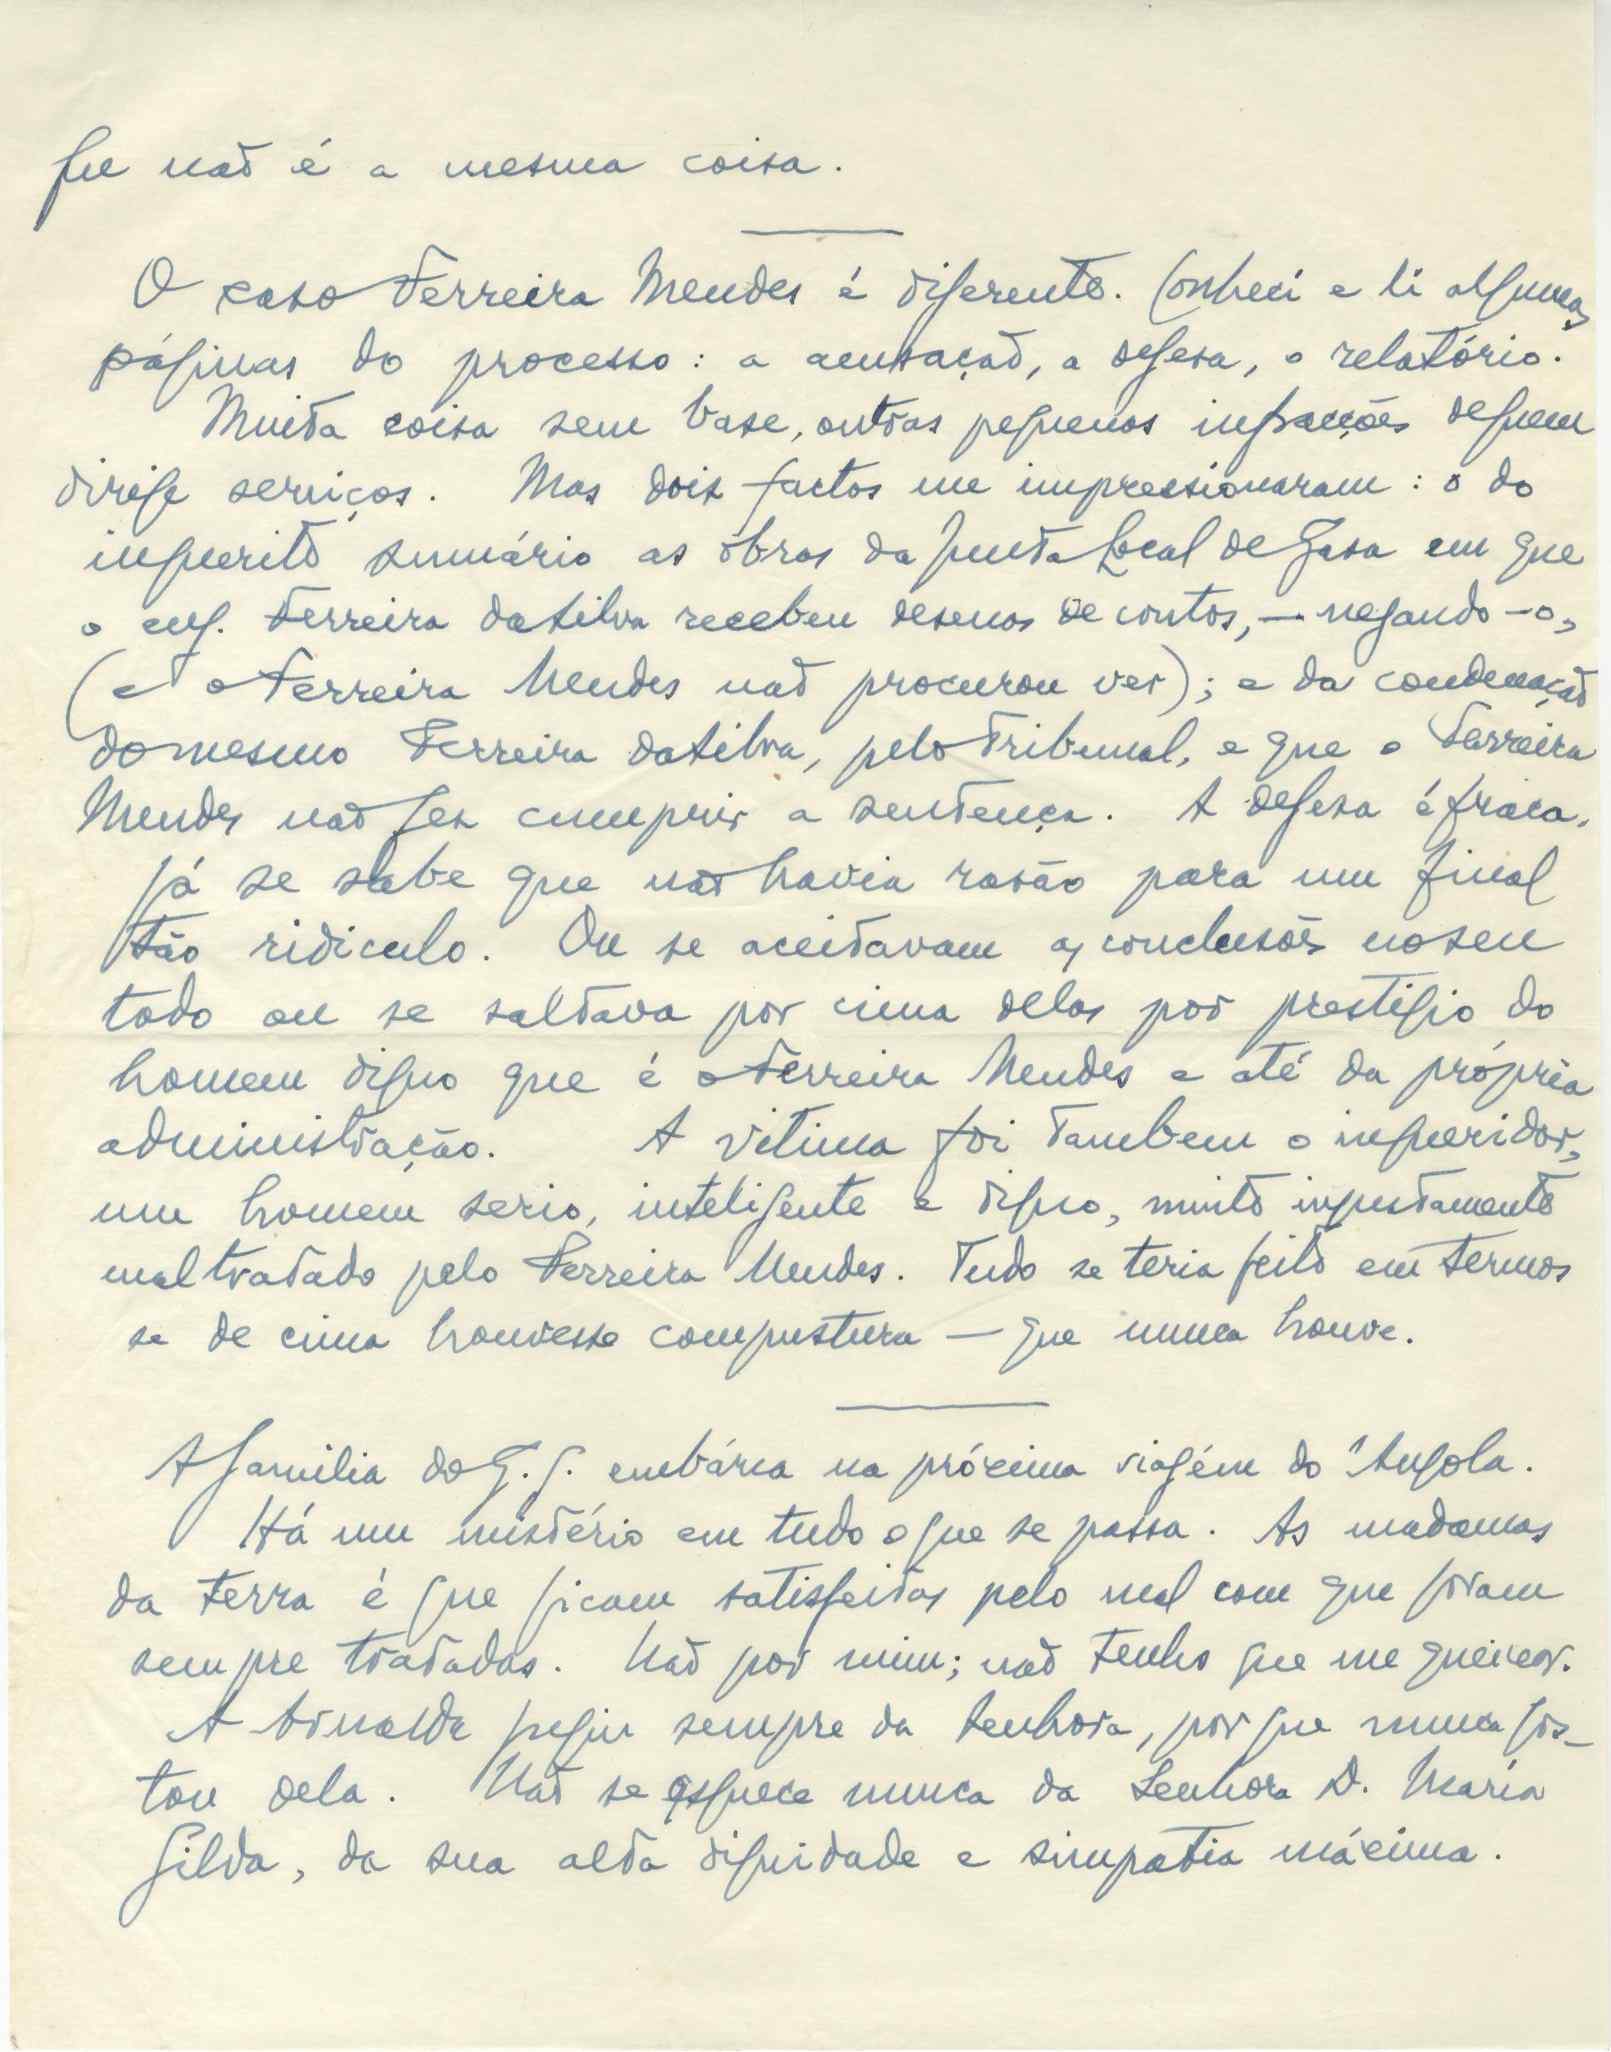 que não é a mesma coisa.
O caso Ferreira Mendes é diferente. Conheci e li algumas
páginas do processo: a acusação, a defesa, o relatório.
Muita coisa sem base, outras pequenas infracções de quem
dirige serviços. Mas dois factos me impressionaram: o do
inquerito sumário as obras da Junta Local de Gaza em que
o eng. Ferreira da Silva recebeu desenas de contos, — negando-o,
(e o Ferreira Mendes não procurou ver); e da condenação
do mesmo Ferreira da Silva, pelo Tribunal, e que o Ferreira
Mendes não fez cumprir a sentença. A defesa é fraca.
Já se sabe que não havia rasão para um final
tão ridiculo. Ou se aceitavam as conclusões no seu
todo ou se saltava por cima delas por prestigio do
homem digno que é o Ferreira Mendes e até da própria
administração. A vitima foi tambem o inqueridor,
um homem serio, inteligente e digno, muito injustamente
maltratado pelo Ferreira Mendes. Tudo se teria feito em termos
se de cima houvesse compustura — que nunca houve.
A familia do G. G. embárca na próxima viagém do Angola.
Há um mistério em tudo o que se passa. As madamas
da terra é que ficam satisfeitas pelo mal com que foram
sempre tratadas. Não por mim; não tenho que me queixar.
A Arnalda fugiu sempre da Senhora, por que nunca gos-
tou dela. Não se esquece nunca da Senhora D. Maria
Gilda, da sua alta dignidade e simpatia máxima.